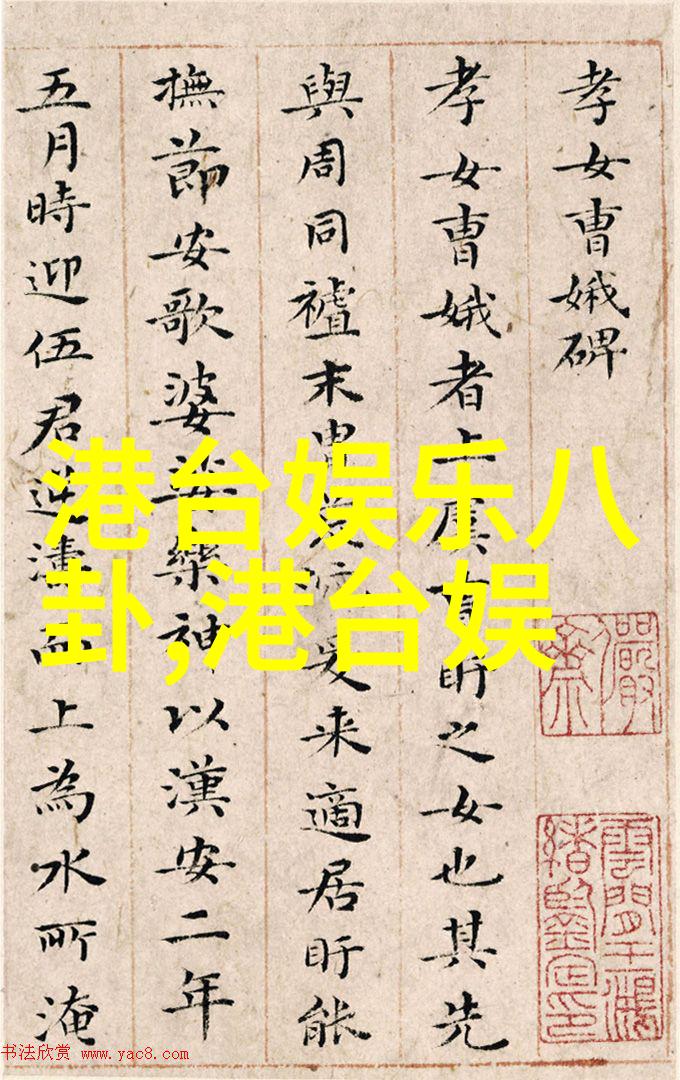 孝女曹娥碑
孝女曹娥者上虞曹盱之女也其先
與周同禇末胄荒流爰来適居盱能
撫節安歌婆娑樂神以漢安二年
五月時迎伍君逆濤而上為水所淹
港台娱乐八
卦,港台娱
书法欣赏 www.yac8.com